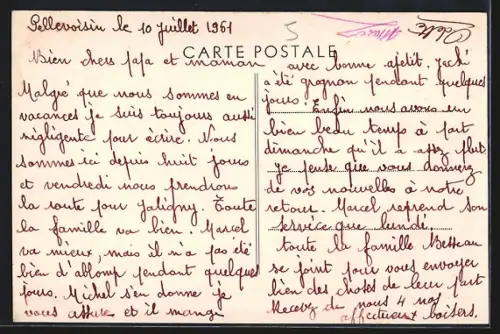 Pellevoisin le 10 juillet 1961
5
CARTE POSTALE
Bien chers papa et maman
Malgré que nous sommes en
vacances je suis toujours aussi
négligente pour écrire. Nous
sommes ici depuis huit jours
et vendredi nous prendrons
la route pour Jaligny. Toute
la famille va bien. Marcel
va mieux, mais il n'a pas été
bien d'ablomp pendant quelques
jours. Michel s'en donne je
vous assure et il mange
avec bonne apetit.
a été grognon pendant quelques
jours. Enfin nous avons un
bien beau temps à part
dimanche qu'il a assez plut
je pense que vous donnerez
de vos nouvelles à notre
retour. Marcel reprend son
service que lundi.
toute la famille
se joint pour vous envoyer
bien des choses de leur part
Recevez de nous 4 nos
affectueux baisers.